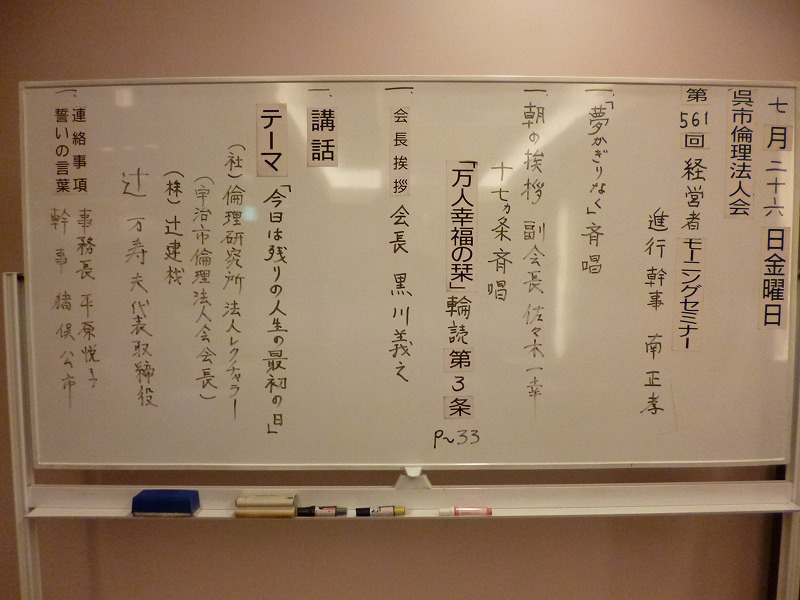 七月二十六日金曜日
呉市倫理法人会
第561回 経営者モーニングセミナー
進行 幹事 南 正孝
一、「夢かぎりなく」斉唱
一、朝の挨拶 副会長 佐々木一幸
十七ヵ条斉唱
「万人幸福の栞」輪読 第3条
P~33
一、会長挨拶 会長 黒川義之
一、講話
テーマ「今日は残りの人生の最初の日」
(社)倫理研究所 法人レクチャラー
(宇治市倫理法人会会長)
(株)辻建機
辻 万寿夫 代表取締役
一、連絡事項 事務長 平原悦子
誓いの言葉 幹事 猪俣公市